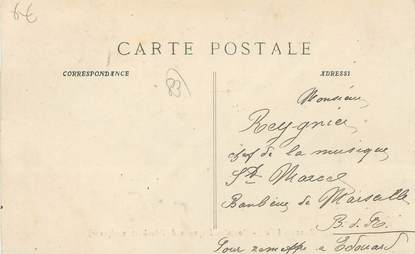 6€
CARTE POSTALE
CORRESPONDANCE
ADRESSE
83
Monsieur
Reygnier
chef de la musique
St Marcel
Banlieue de Marseille
B. d. R.
Pour remettre a Edouard